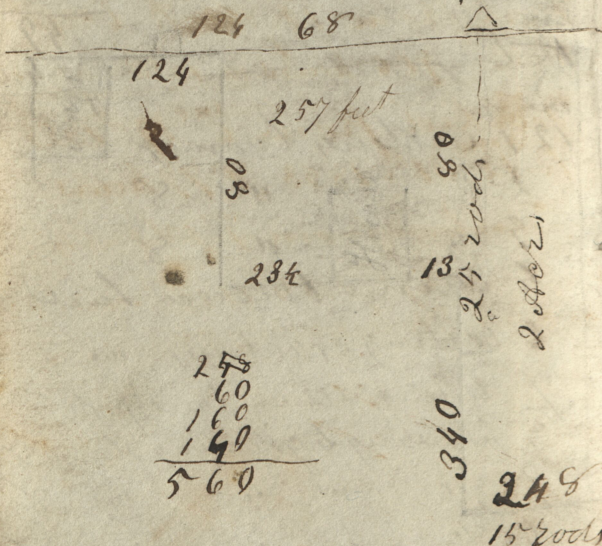 124 68
124
257 feet
80
80
25 rods
2 Acr
234
13
248
60
160
140
560
340
248
15 rods